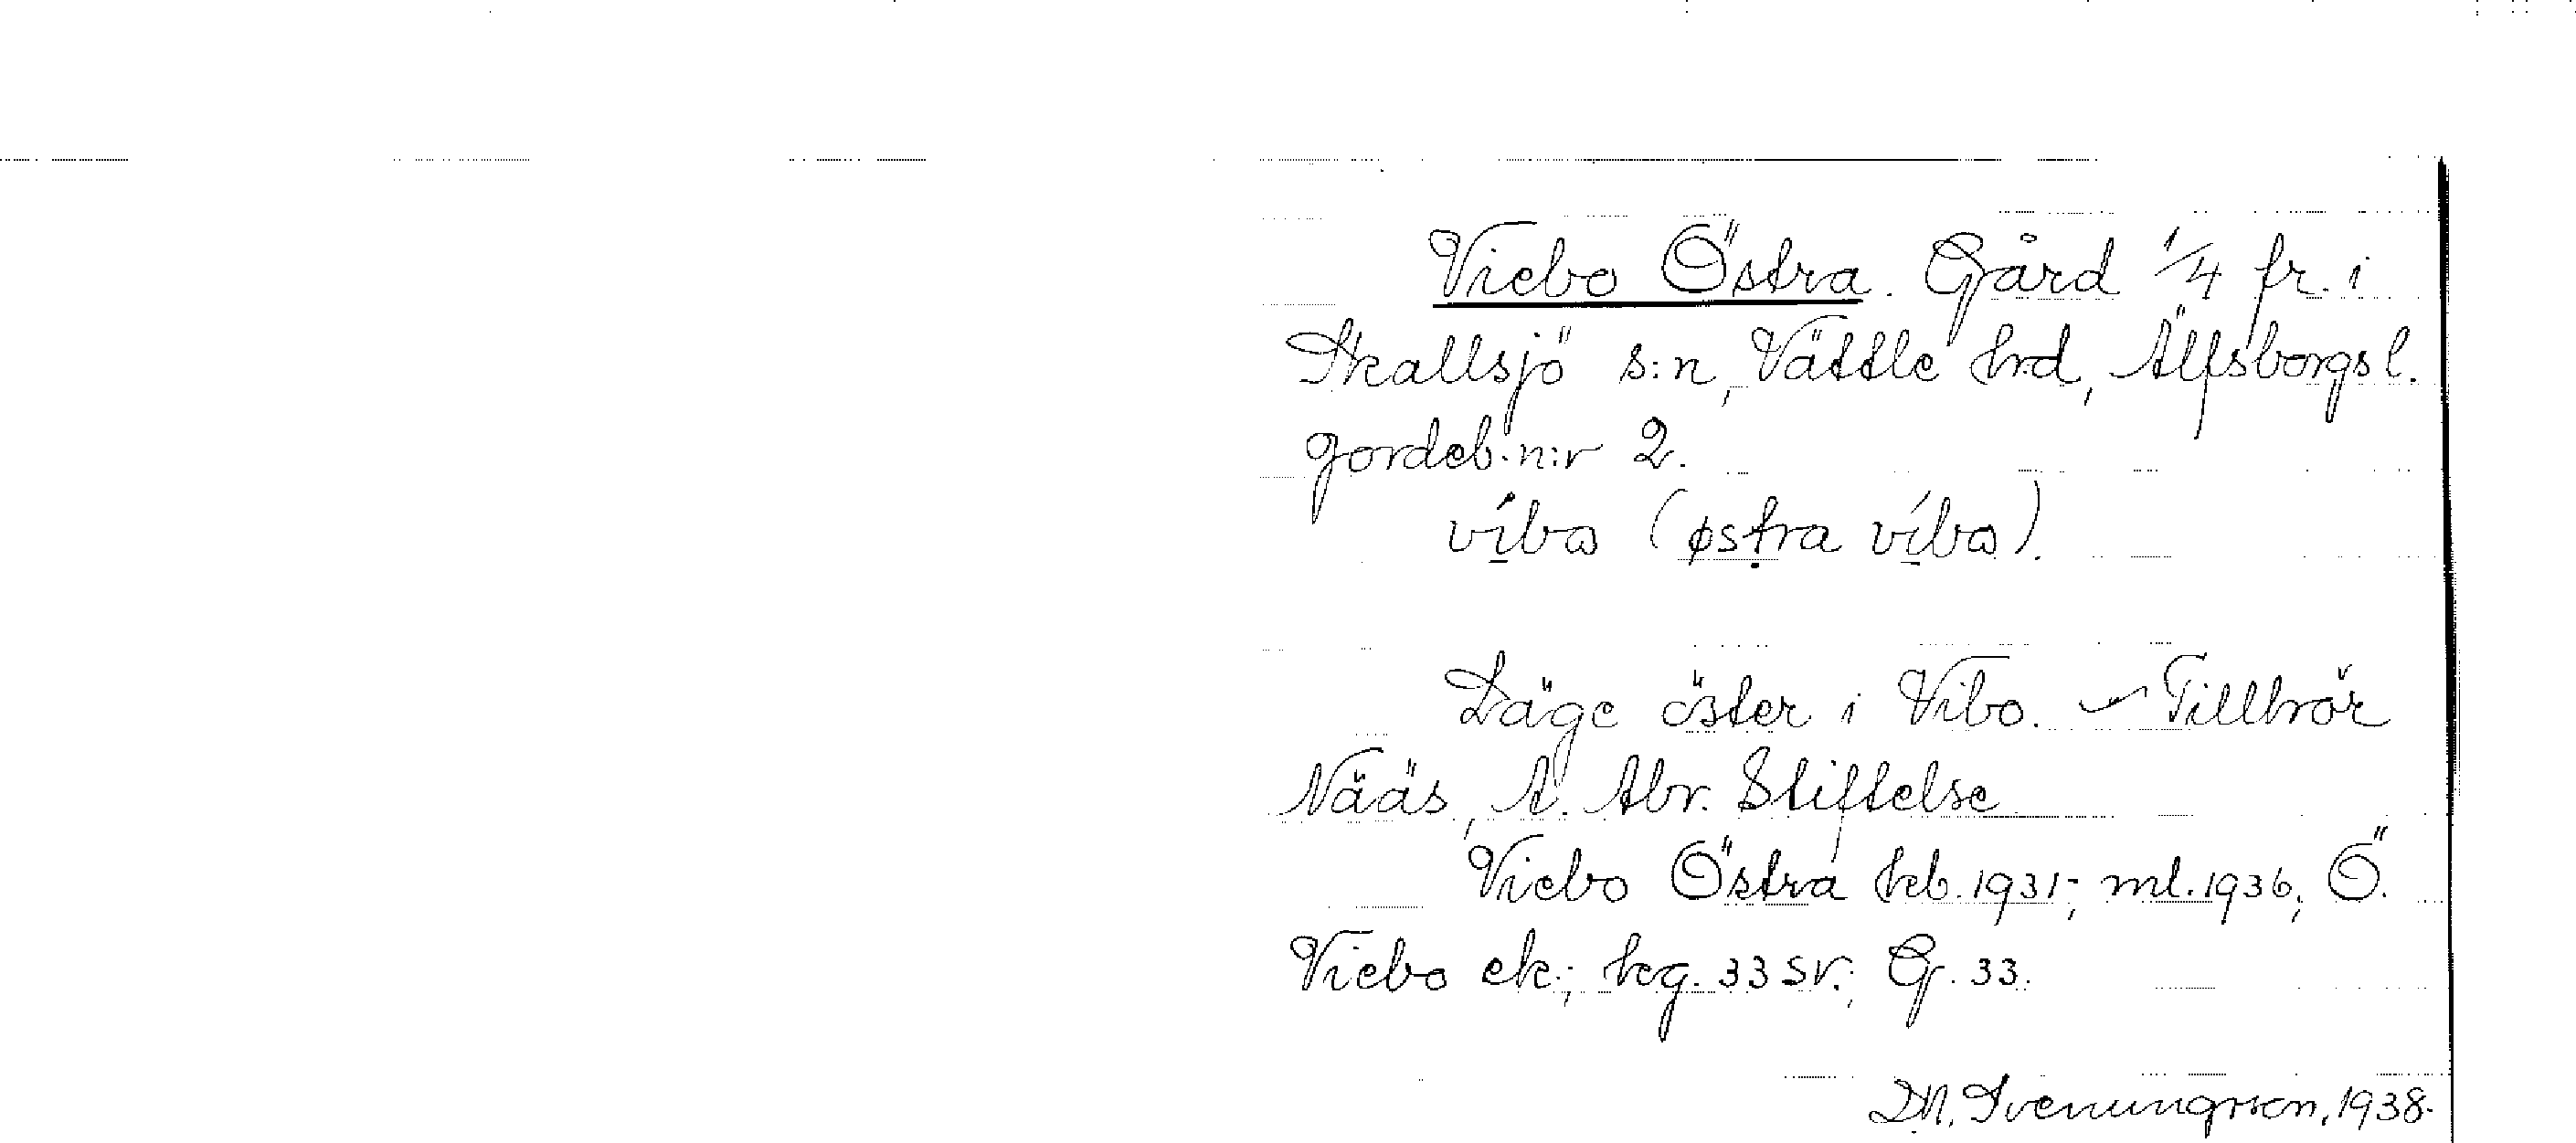 Viebo Östra. Gård 1/4 fr. i
Skallsjö s:n, Vättle hrd, Älfsborgs l.
gordeb. n:r 2.
ví̲bω (østra ví̲bω).
Läge öster i Vibo. – Tillhör
Nääs, A. Abr. Stiftelse
Viebo Östra kb. 1931; ml. 1936, Ö.
Viebo ek.; hg. 33 sv.; G. 33.
D.N. Svenungsson, 1938.